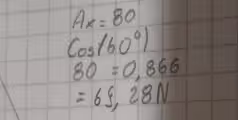 Ax = 80
Cos(60°)
80 = 0,866
= 69, 28N